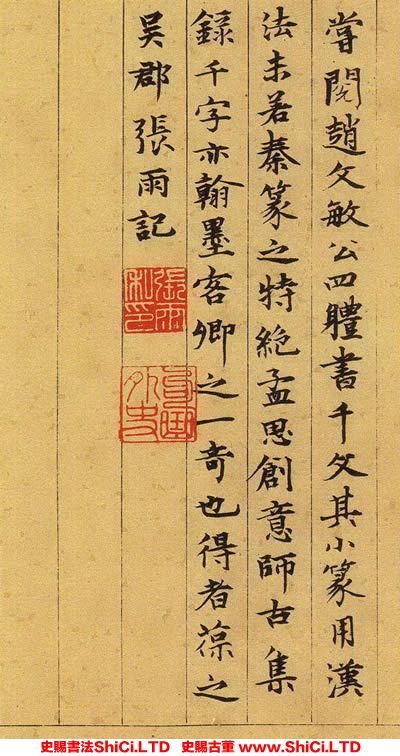 嘗閱趙文敏公四體書千文其小篆用漢
法未若秦篆之特絕孟思創意師古集
錄千字亦翰墨客卿之一奇也得者葆之
吳郡張雨記
張雨私印
句曲外史
史賜書法ShiCi.LTD 史賜古董 www.ShiCi.LTD